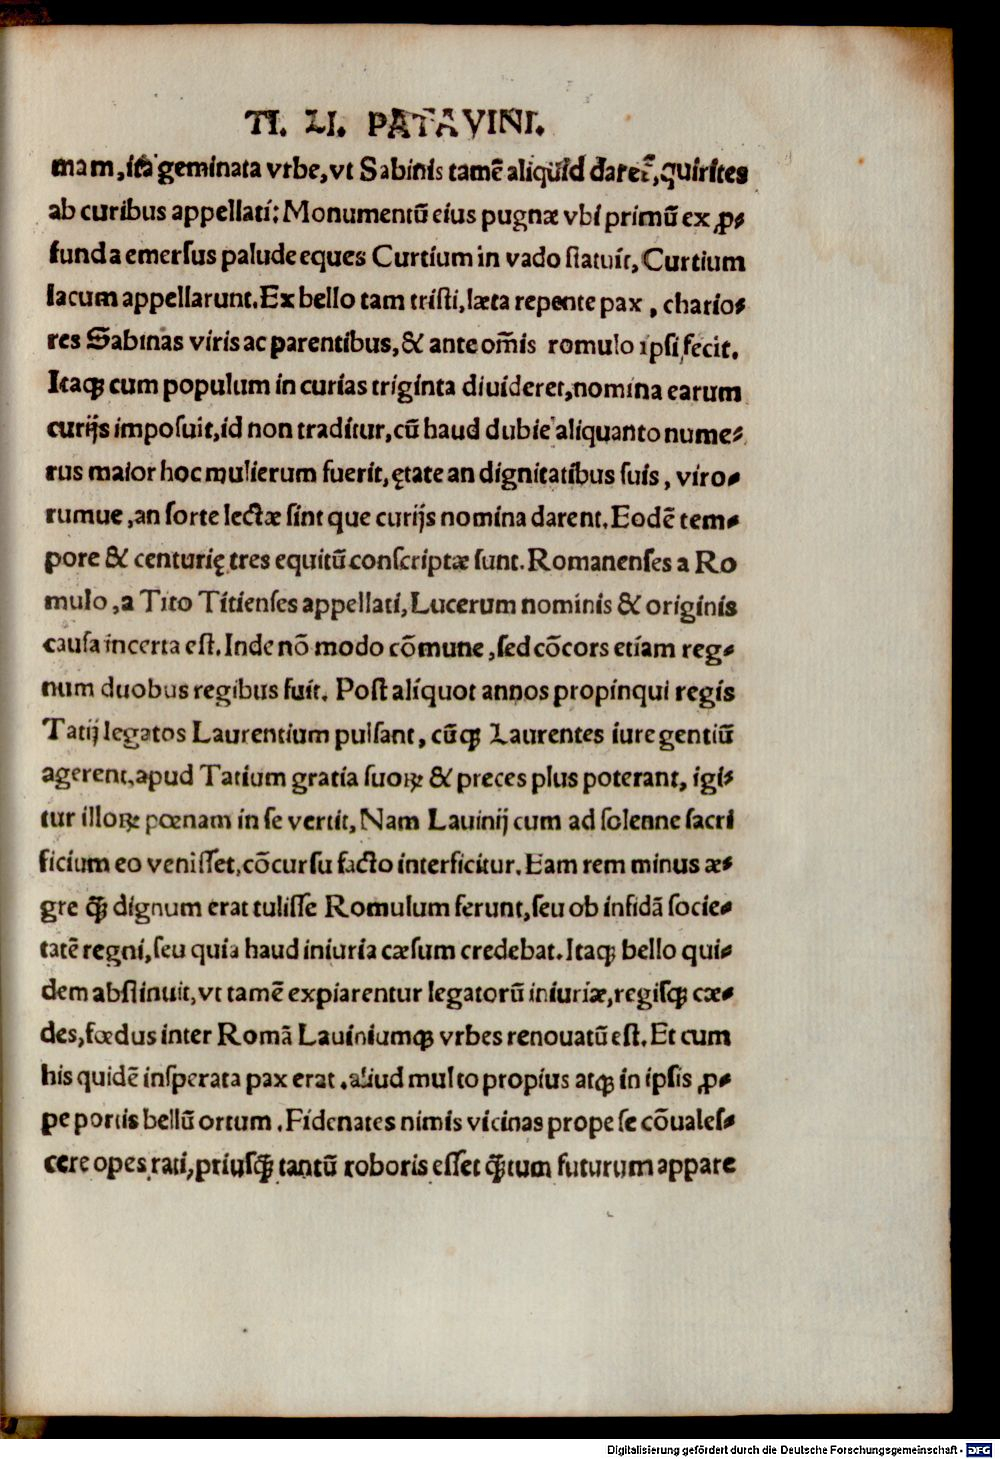 TI. LI. PATAVINI.
mam, ita geminata vrbe, vt Sabinis tamē aliquid daret̄, quirites
ab curibus appellati: Monumentū eius pugnæ vbi primū ex ꝓ⸗
funda emersus palude eques Curtium in vado statuit, Curtium
lacum appellarunt. Ex bello tam tristi, læta repente pax, chario⸗
res Sabinas viris ac parentibus, & ante om̄is romulo ipsi fecit.
Itaqꝫ cum populum in curias triginta diuideret, nomina earum
curijs imposuit, id non traditur, cū haud dubie aliquanto nume⸗
rus maior hoc mulierum fuerit, ętate an dignitatibus suis, viro⸗
rumue, an sorte lectæ sint que curijs nomina darent. Eodē tem⸗
pore & centurię tres equitū conscriptæ sunt. Romanenses a Ro
mulo, a Tito Titienses appellati, Lucerum nominis & originis
causa incerta est. Inde nō modo cōmune, sed cōcors etiam reg⸗
num duobus regibus fuit. Post aliquot annos propinqui regis
Tatij legatos Laurentium pulsant, cūqꝫ Laurentes iure gentiū
agerent, apud Tatium gratia suoꝝ & preces plus poterant, igi⸗
tur illoꝝ pœnam in se vertit, Nam Lauinij cum ad solenne sacri
ficium eo venisset, cōcursu facto interficitur. Eam rem minus æ⸗
gre q̄ꝫ dignum erat tulisse Romulum ferunt, seu ob infidā socie⸗
tatē regni, seu quia haud iniuria cæsum credebat. Itaqꝫ bello qui⸗
dem abstinuit, vt tamē expiarentur legatorū iniuriæ, regisqꝫ cæ⸗
des, fœdus inter Romā Lauiniumqꝫ vrbes renouatū est. Et cum
his quidē insperata pax erat. aliud multo propius atqꝫ in ipsis ꝓ⸗
pe portis bellū ortum. Fidenates nimis vicinas prope se cōuales⸗
cere opes rati, priusq̄ꝫ tantū roboris esset q̄ꝫtum futurum appare
Digitalisierung gefördert durch die Deutsche Forschungsgemeinschaft - DFG